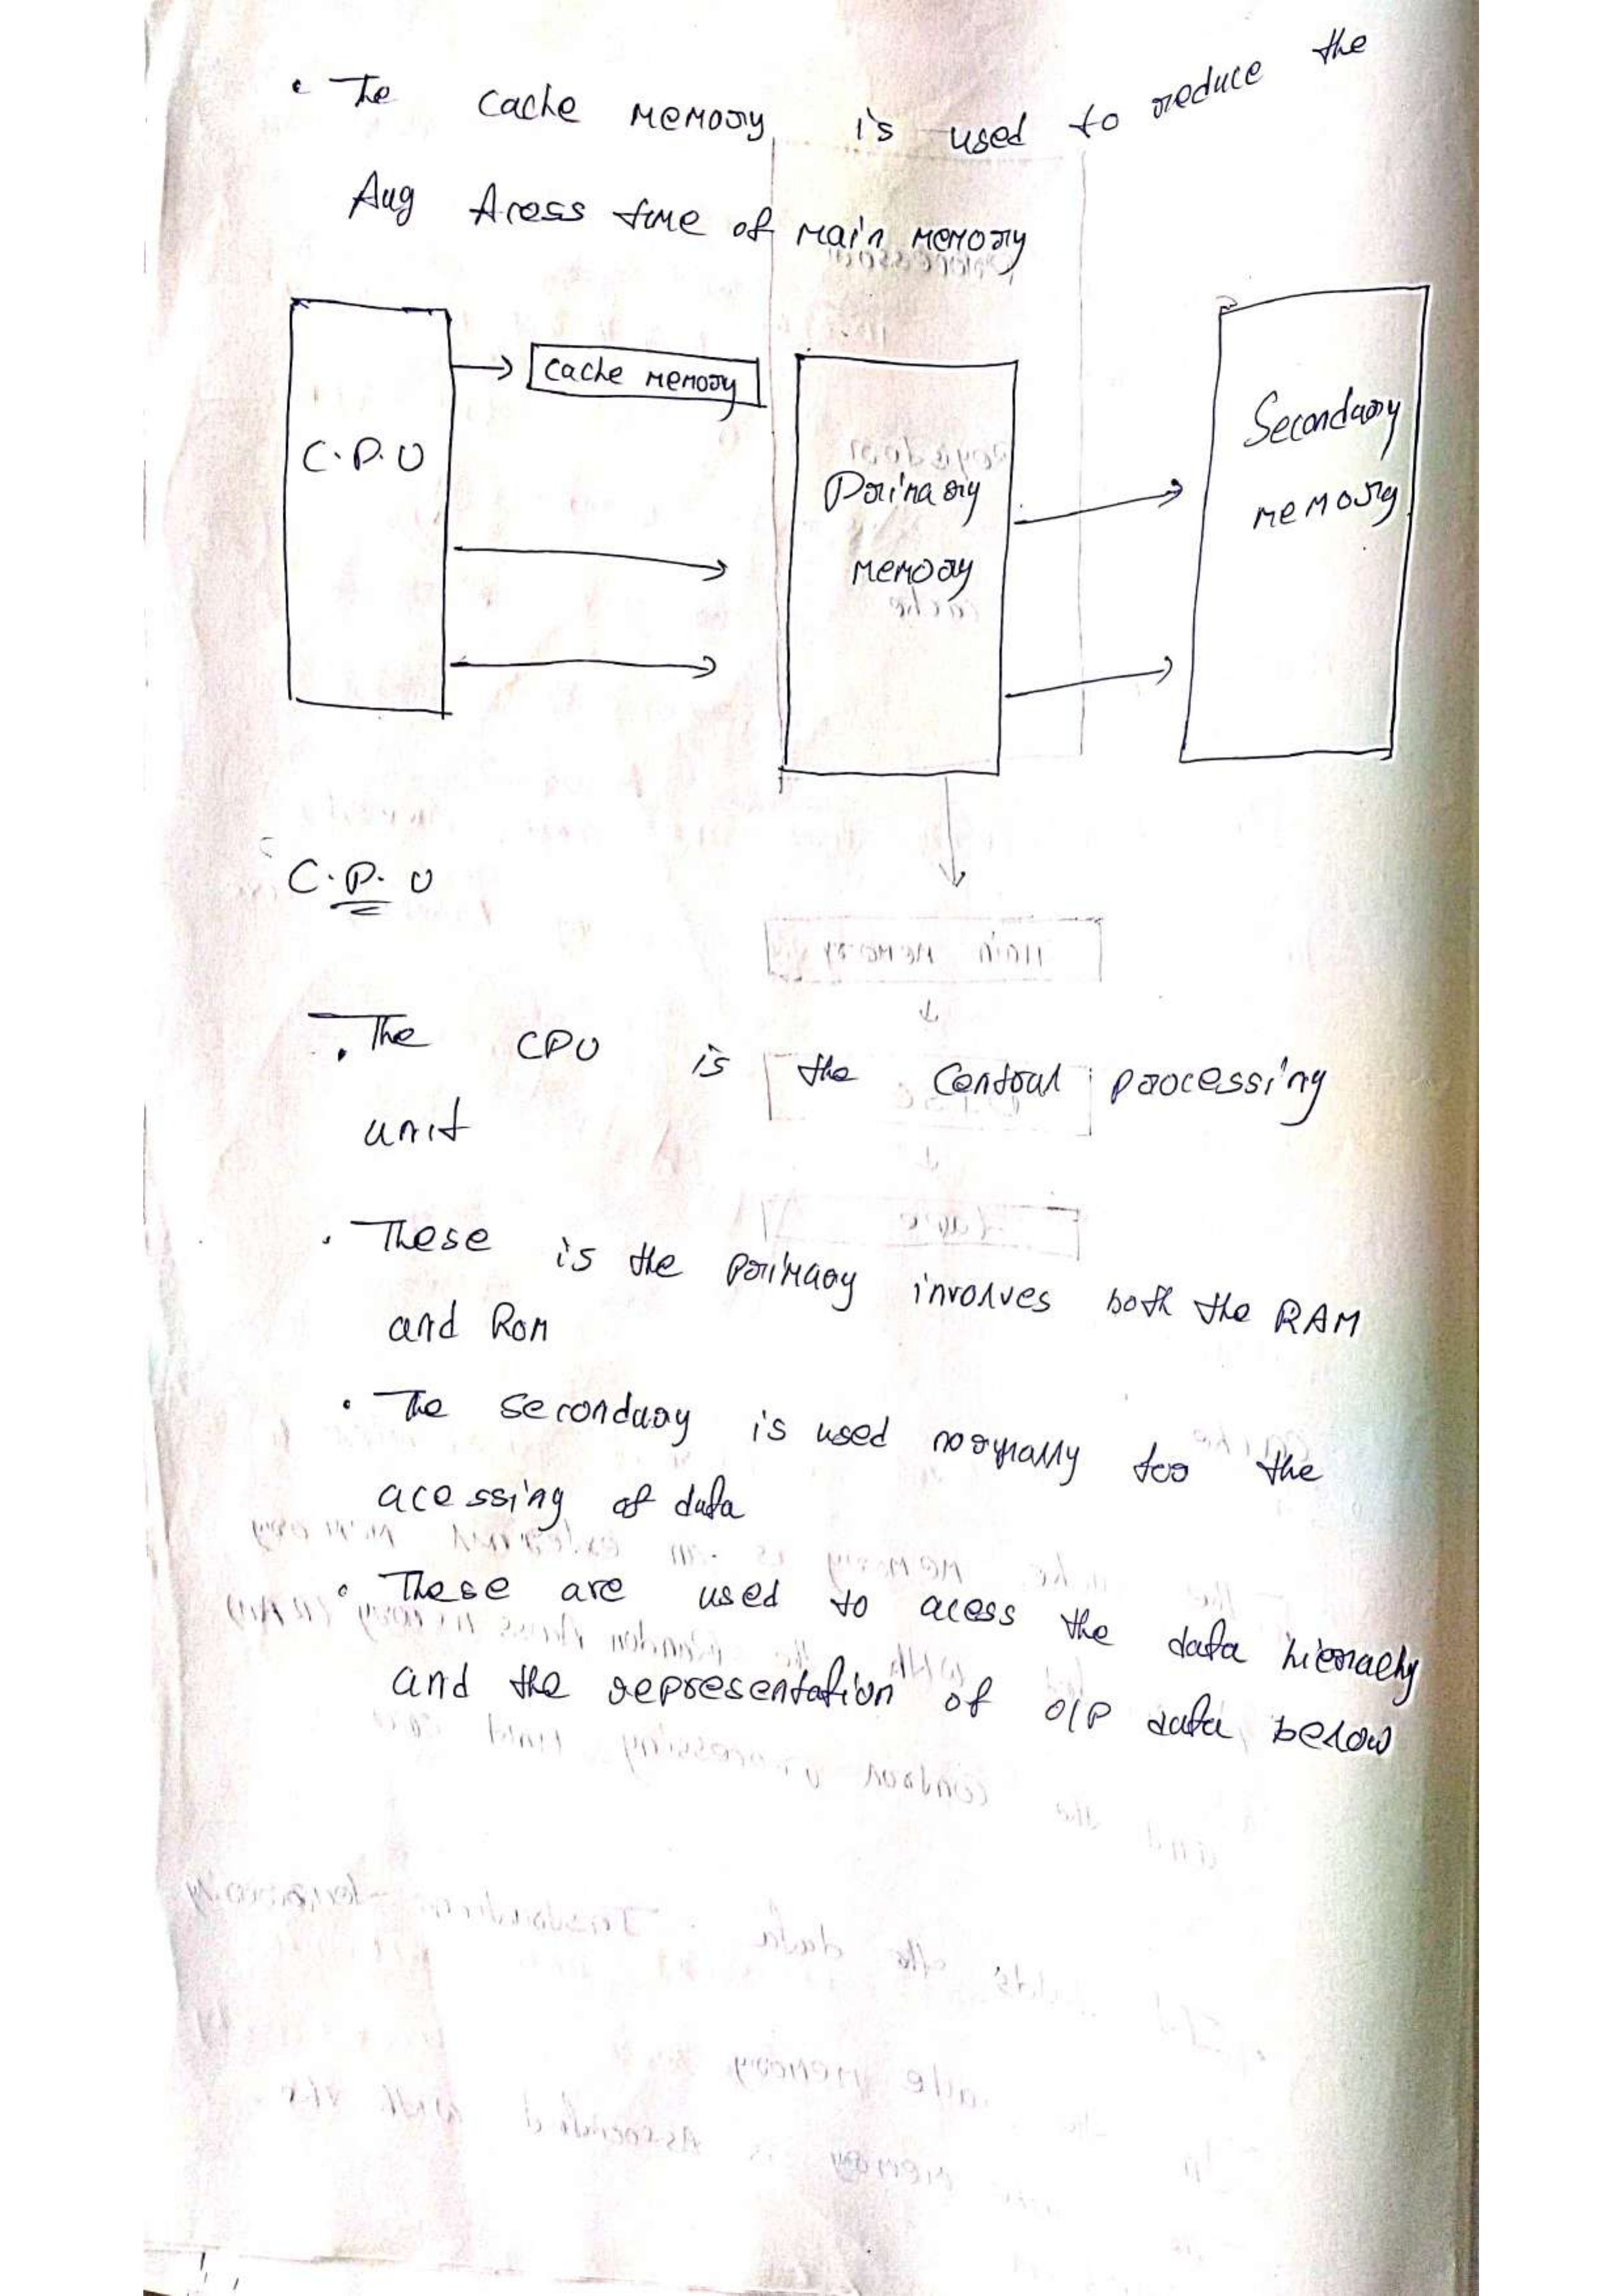 • The cache memory is used to reduce the
Avg Acess time of main memory
cache memory
C.P.U
Primary
memory
Secondary
memory
C.P.U
• The CPU is the Central processing
unit
• These is the primary involves both the RAM
and Rom
• The secondary is used normally for the
acessing of data
• These are used to acess the data hierachy
and the representation of O/P data below